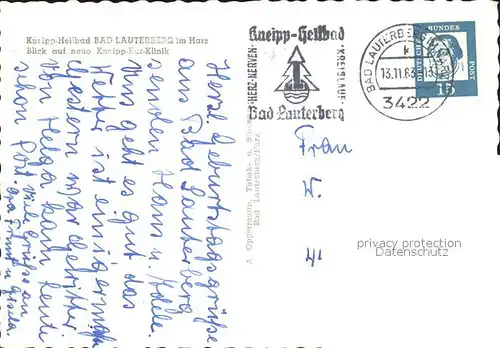 Kneipp-Heilbad BAD LAUTERBERG im Harz
Blick auf neue Kneipp-Kur-Klinik
Herzl. Geburtstagsgrüße
aus Bad Lauterberg
senden Hans u. Adele.
Uns geht es gut das
Wetter ist einigermaß
Gestern war Gewitter
Von Helga kam heute
schon Post. Viele Grüße an
A. Oppermann, Tabak- u.
Bad Lauterberg/Harz
Kneipp-Heilbad
HERZ-NERVEN-
KREISLAUF
Bad Lauterberg
BAD LAUTERBERG IM HARZ
k
13.11.63
3422
DEUTSCHE BUNDESPOST
15
Frau
W.
privacy protection
Datenschutz